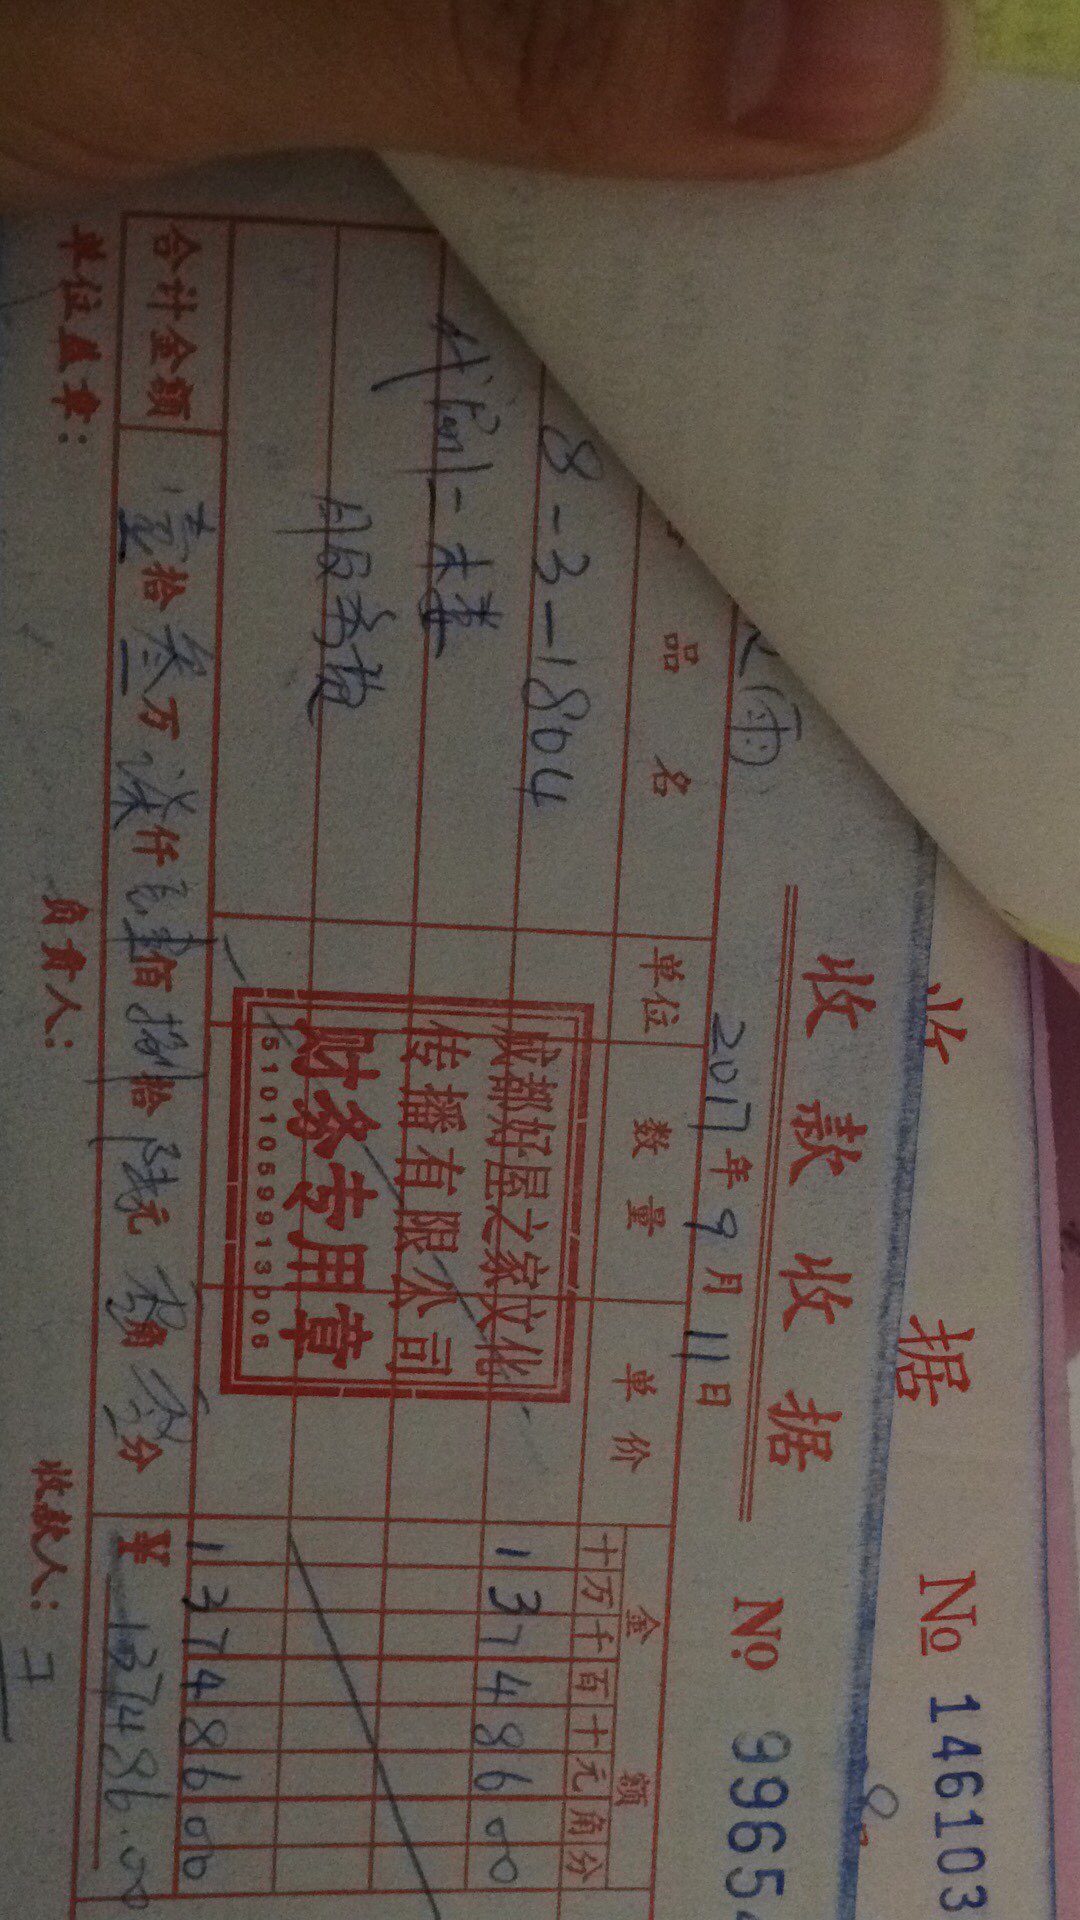 收 据 № 146103
收 款 收 据 № 9965
2017年9月11日
雨
品 名 单位 数 量 单 价 金 额
十万千百十元角分
8-3-1804 13748600
合计金额 壹拾叁万柒仟 佰 拾陆元零角零分 ¥137486.00
13748600
成都好屋之家文化
传播有限公司
财务专用章
5101059913006
单位盖章： 负责人： 收款人：